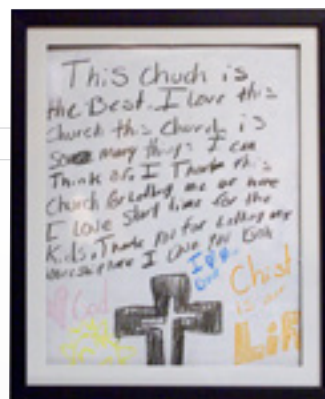 This Chuch is
the Best. I love this
Church this Church is
so many things I can
Think of, I Thank this
Church for Letting me or here
I love Story time for the
Kids, Thank you for Letting me
here I Love you God
I
God
God
Chist
is
Life